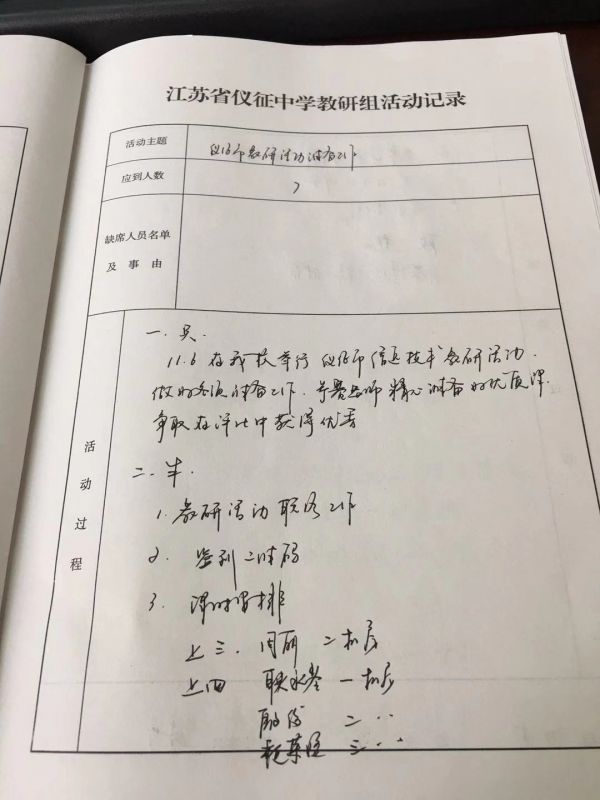 江苏省仪征中学教研组活动记录
活动主题
仪征市教研活动准备工作
应到人数
7
缺席人员名单
及事由
活动过程
一. 吴.
11.6 在我校举行 仪征市信息技术教研活动.
做好各项准备工作. 参赛老师精心准备好优质课.
争取在评比中获得优秀
二. 牛.
1. 教研活动联络工作
2. 签到二维码
3. 课时安排
上三. 周丽 二机房
上四 一机房
二 ..
三 ..